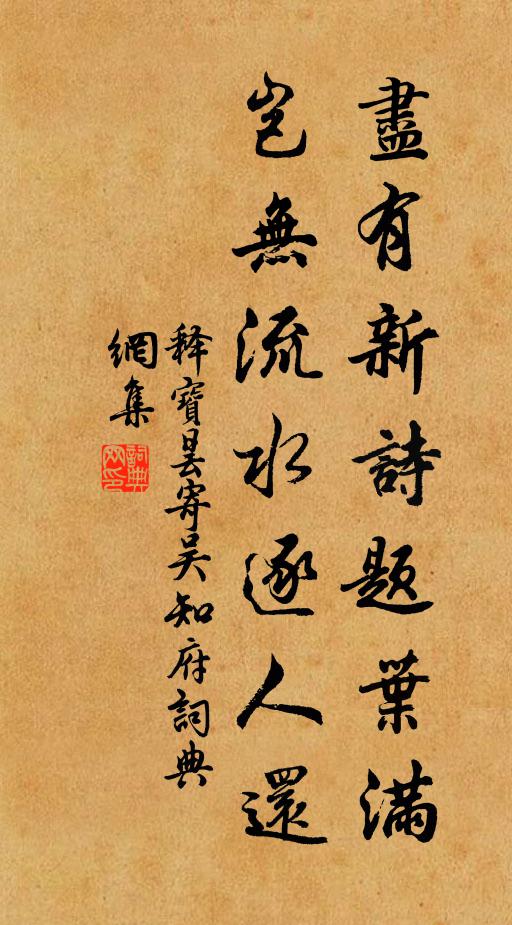 盡有新詩題葉滿
豈無流水逐人還
释寶曇寄吴知府詞典
網集
詞典
网印